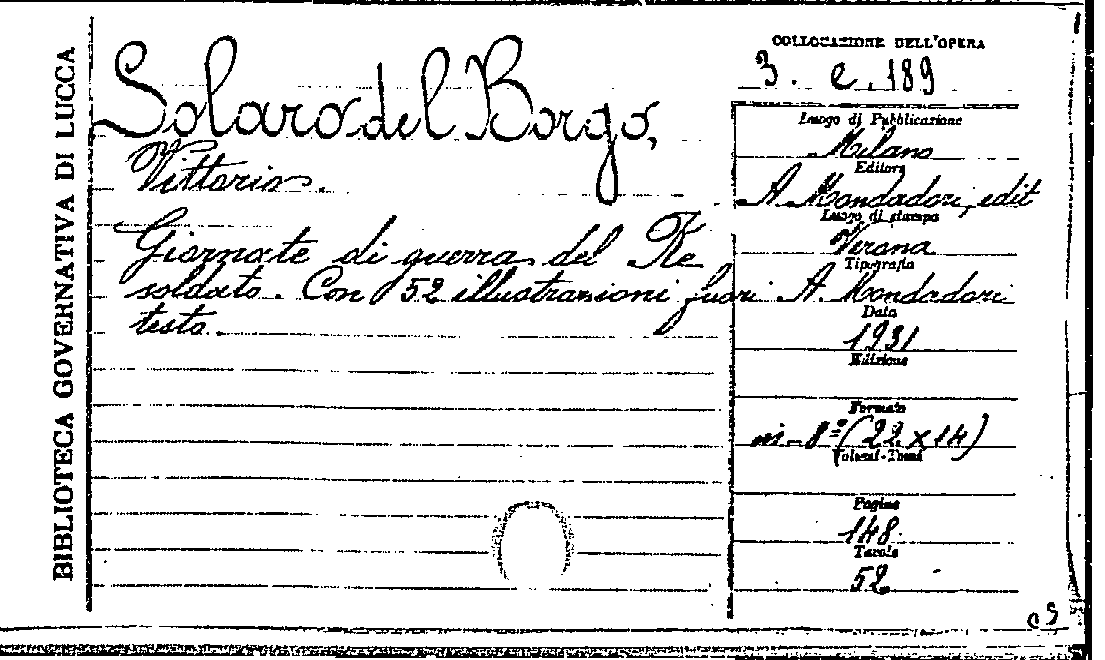 BIBLIOTECA GOVERNATIVA DI LUCCA
Solaro del Borgo,
Vittorio.
Giornate di guerra del Re
soldato. Con 52 illustrazioni fuori
testo.
COLLOCAZIONE DELL'OPERA
3. e. 189
Luogo di Pubblicazione
Milano
Editore
A. Mondadori, edit
Luogo di stampa
Verona
Tipografia
A. Mondadori
Data
1931
Edizione
Formato
in-8º (22 x 14)
Volumi-Tomi
Pagine
148
Tavole
52